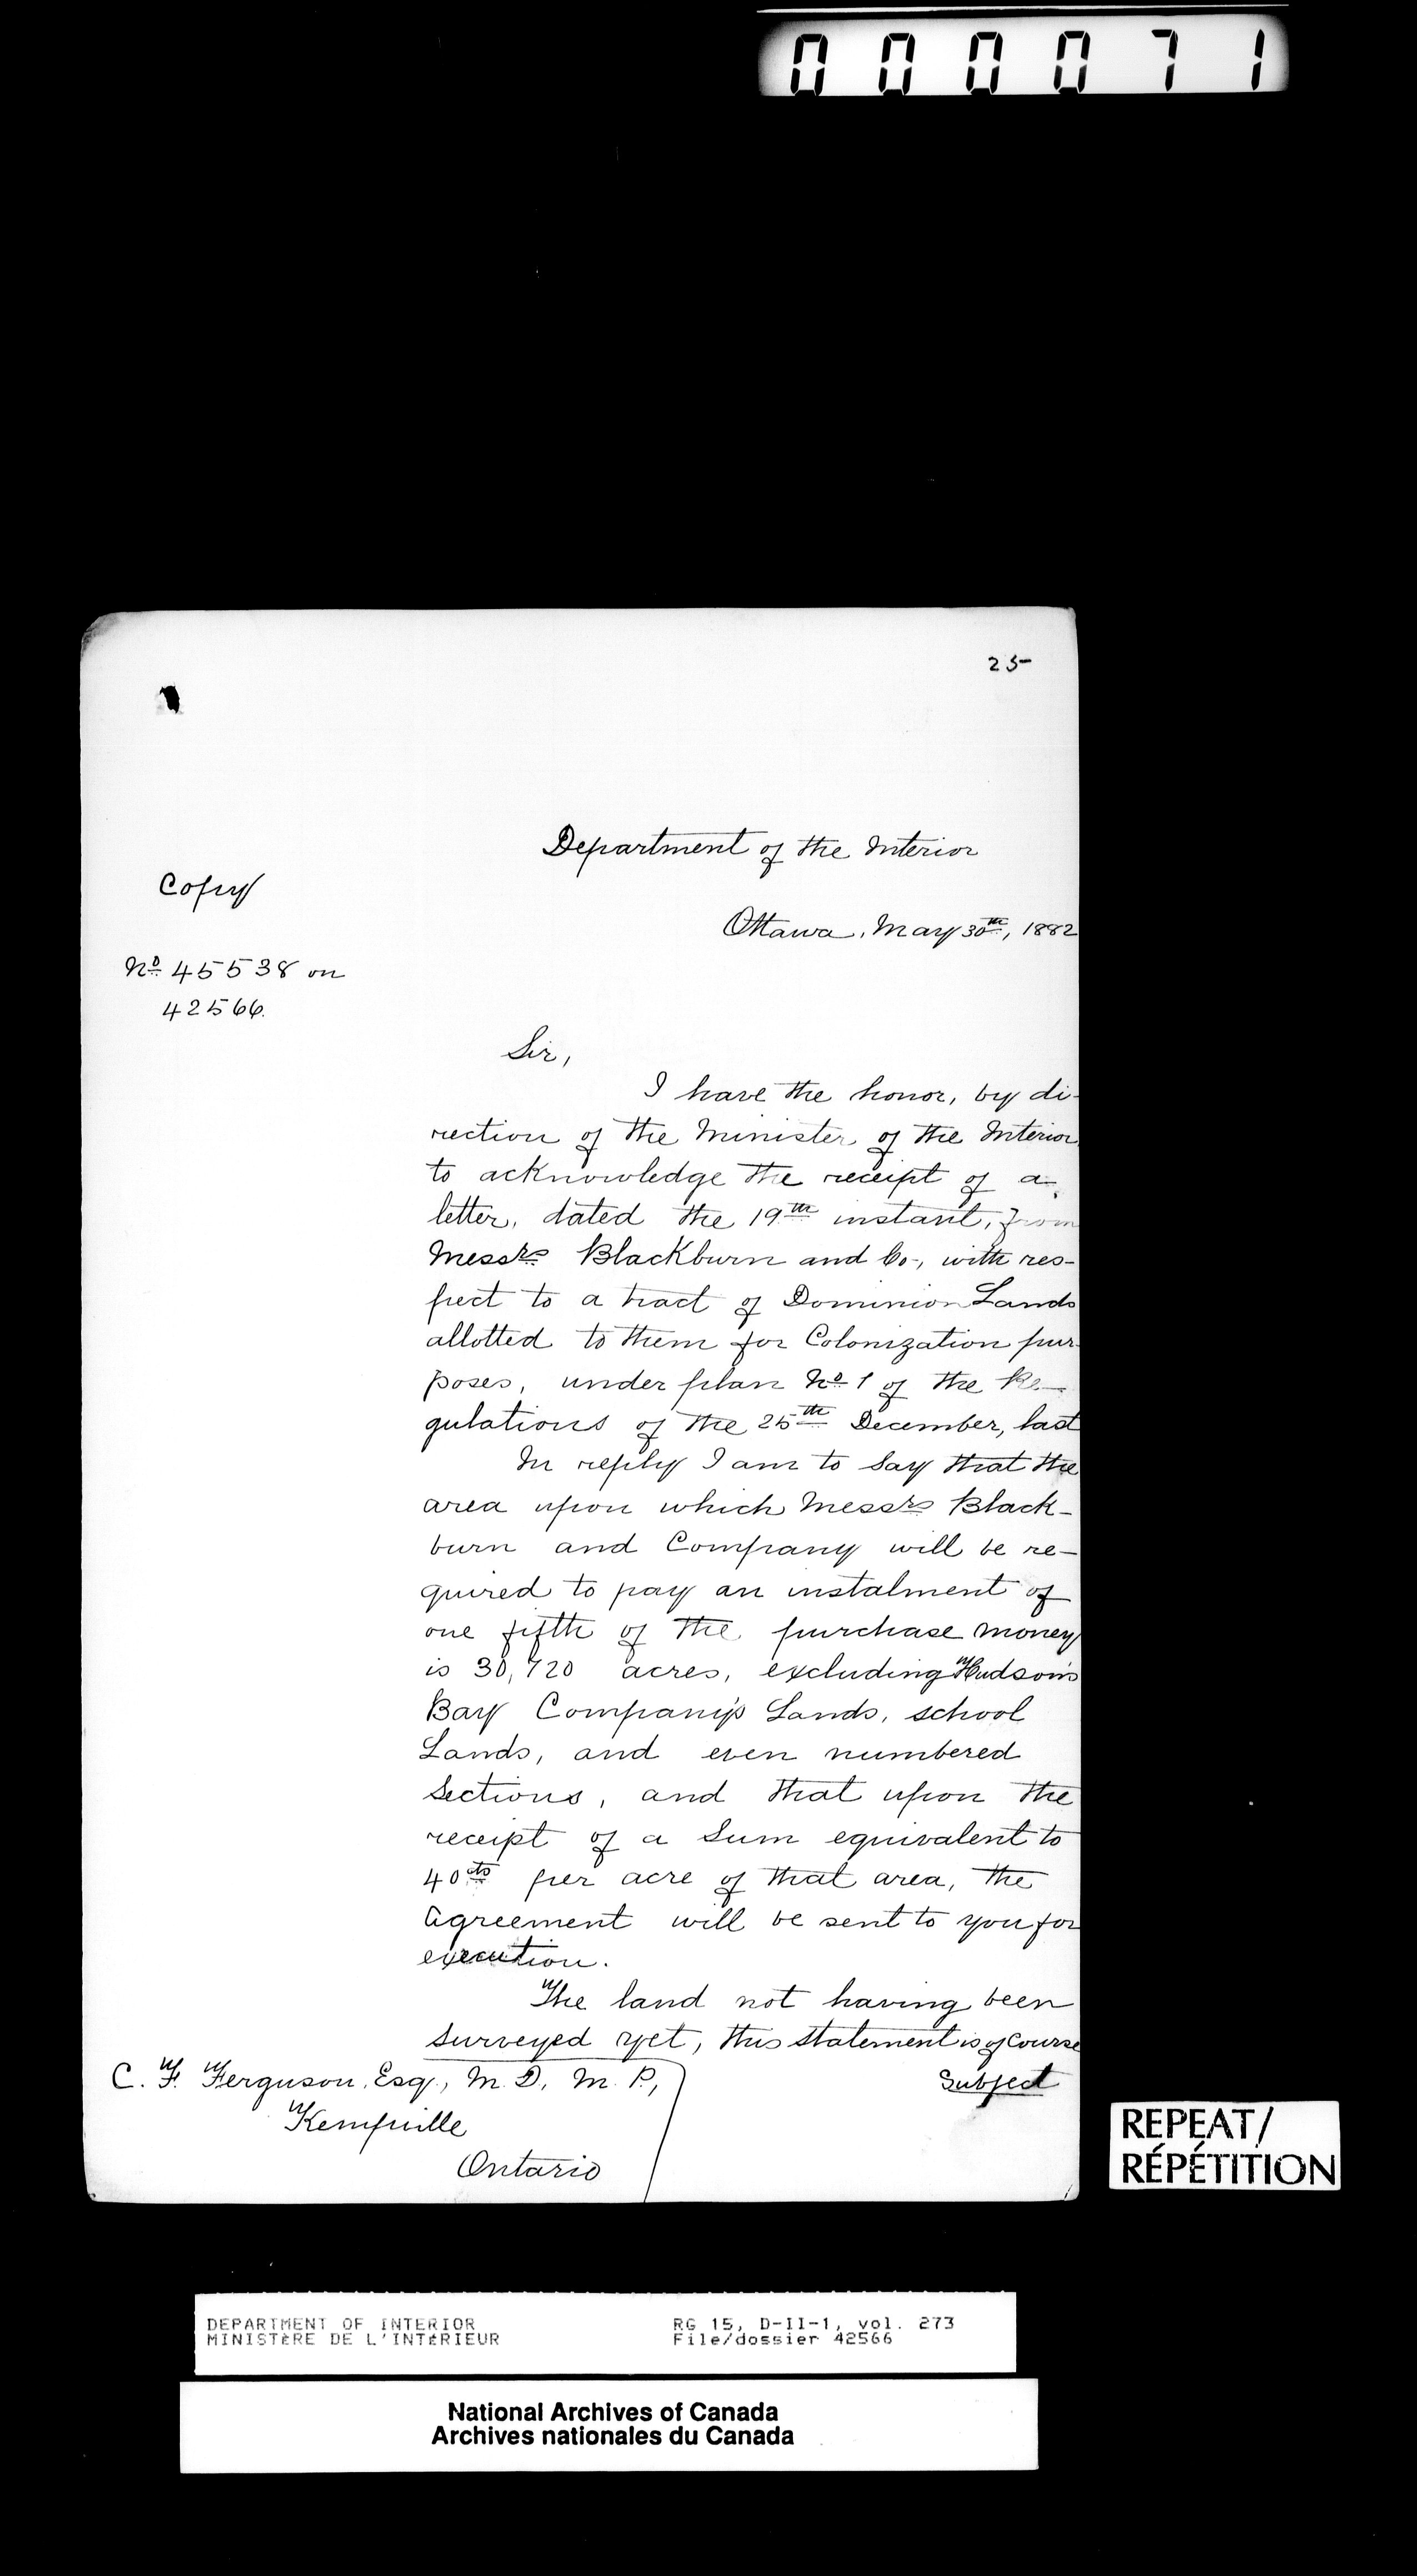 000071
25
Department of the Interior
Copy
Ottawa, May 30th, 1882
No 45538 on
42566.
Sir,
I have the honor, by di-
rection of the Minister of the Interior
to acknowledge the receipt of a
letter, dated the 19th instant, from
Messrs Blackburn and Co., with res-
pect to a tract of Dominion Lands
allotted to them for Colonization pur-
poses, under plan No 1 of the Re-
gulations of the 25th December, last
In reply I am to say that the
area upon which Messrs Black-
burn and Company will be re-
quired to pay an instalment of
one fifth of the purchase money
is 30,720 acres, excluding Hudson's
Bay Company's Lands, school
Lands, and even numbered
Sections, and that upon the
receipt of a Sum equivalent to
40cts per acre of that area, the
Agreement will be sent to you for
execution.
The land not having been
surveyed yet, this statement is of course
Subject
C. F. Ferguson, Esq., M.D., M.P.,
Kempville
Ontario
REPEAT/
RÉPÉTITION
DEPARTMENT OF INTERIOR
MINISTÈRE DE L'INTÉRIEUR
RG 15, D-II-1, vol. 273
File/dossier 42566
National Archives of Canada
Archives nationales du Canada